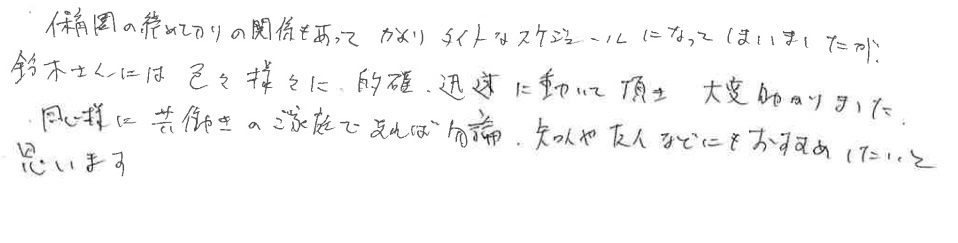 保育園の締めきりの関係もあって かなりタイトなスケジュールになってしまいましたが、
鈴木さんには 色々様々に、的確、迅速に動いて頂き 大変助かりました。
同じ様に共働きのご家庭であれば勿論、知人や友人などにもおすすめしたいと
思います